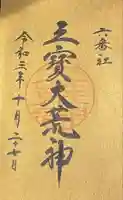 六番社
三寶大荒神
令和三年十月二十七日